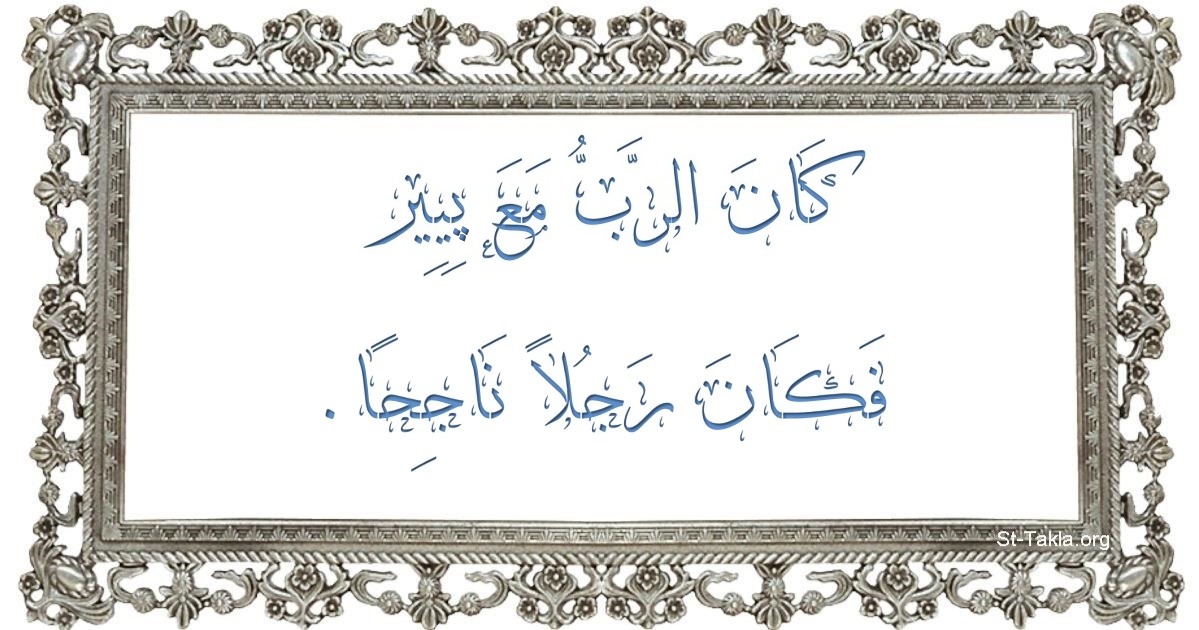 كَانَ الرَّبُّ مَعَ پِيِير
فَكَانَ رَجُلاً نَاجِحًا .
St-Takla.org